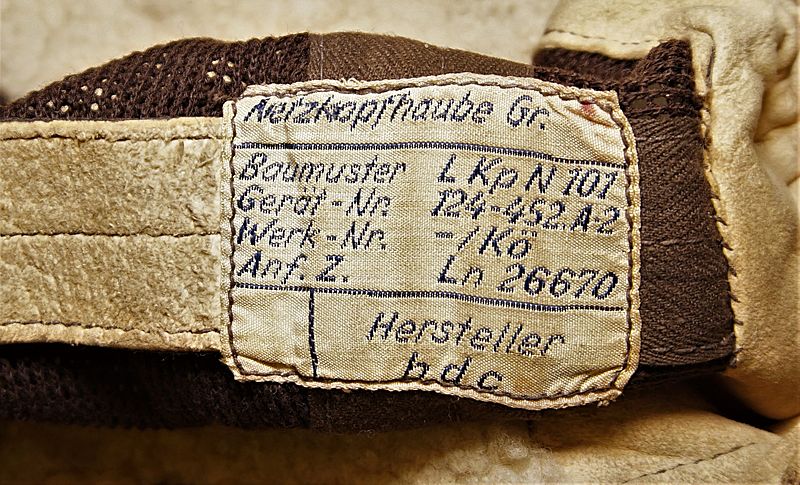 Netzkopfhaube Gr.
Baumuster L Kp N 101
Gerät-Nr. 124-452 A-2
Werk-Nr. -/Kö
Anf. Z. Ln 26670
Hersteller
b d c